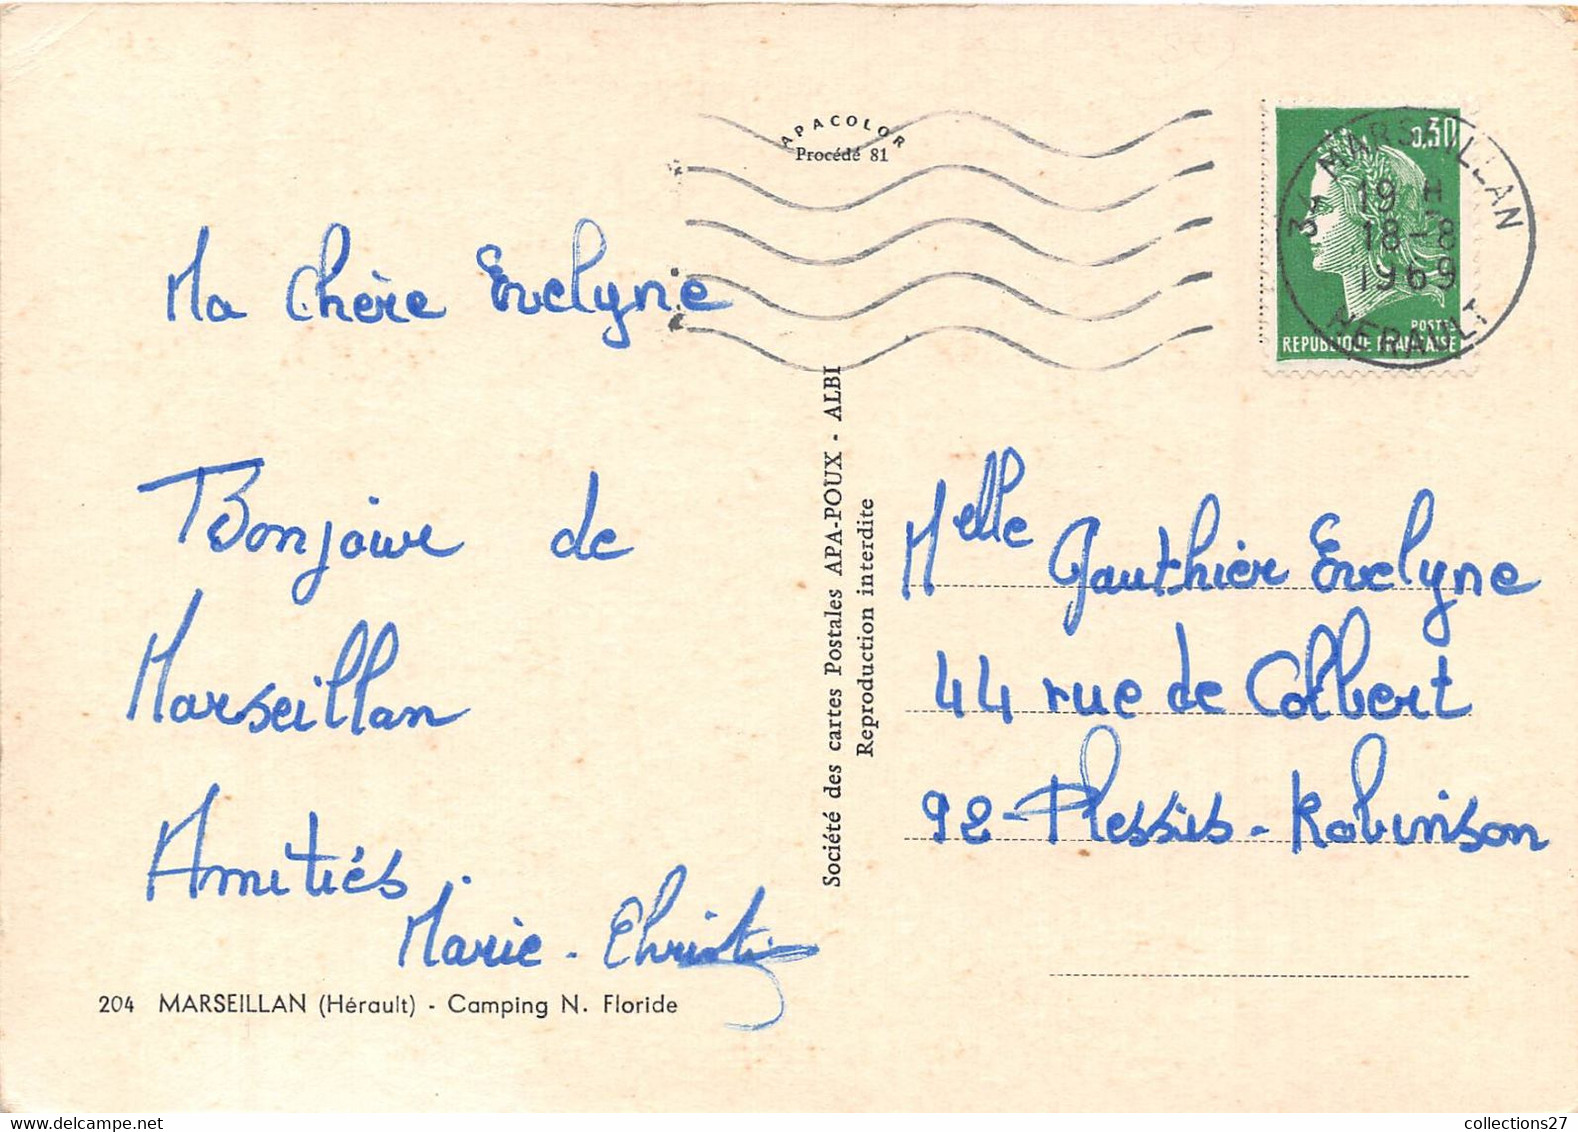 APACOLOR
Procédé 81
0,30
34 MARSEILLAN
19 H
18-8
1969
HERAULT
POSTES
REPUBLIQUE FRANÇAISE
Ma Chère Evelyne
Bonjour de
Marseillan
Amitiés.
Marie-Christine
204 MARSEILLAN (Hérault) - Camping N. Floride
Société des cartes Postales APA-POUX - ALBI
Reproduction interdite
Melle Gauthier Evelyne
44 rue de Colbert
92-Plessis-Robinson
collections27